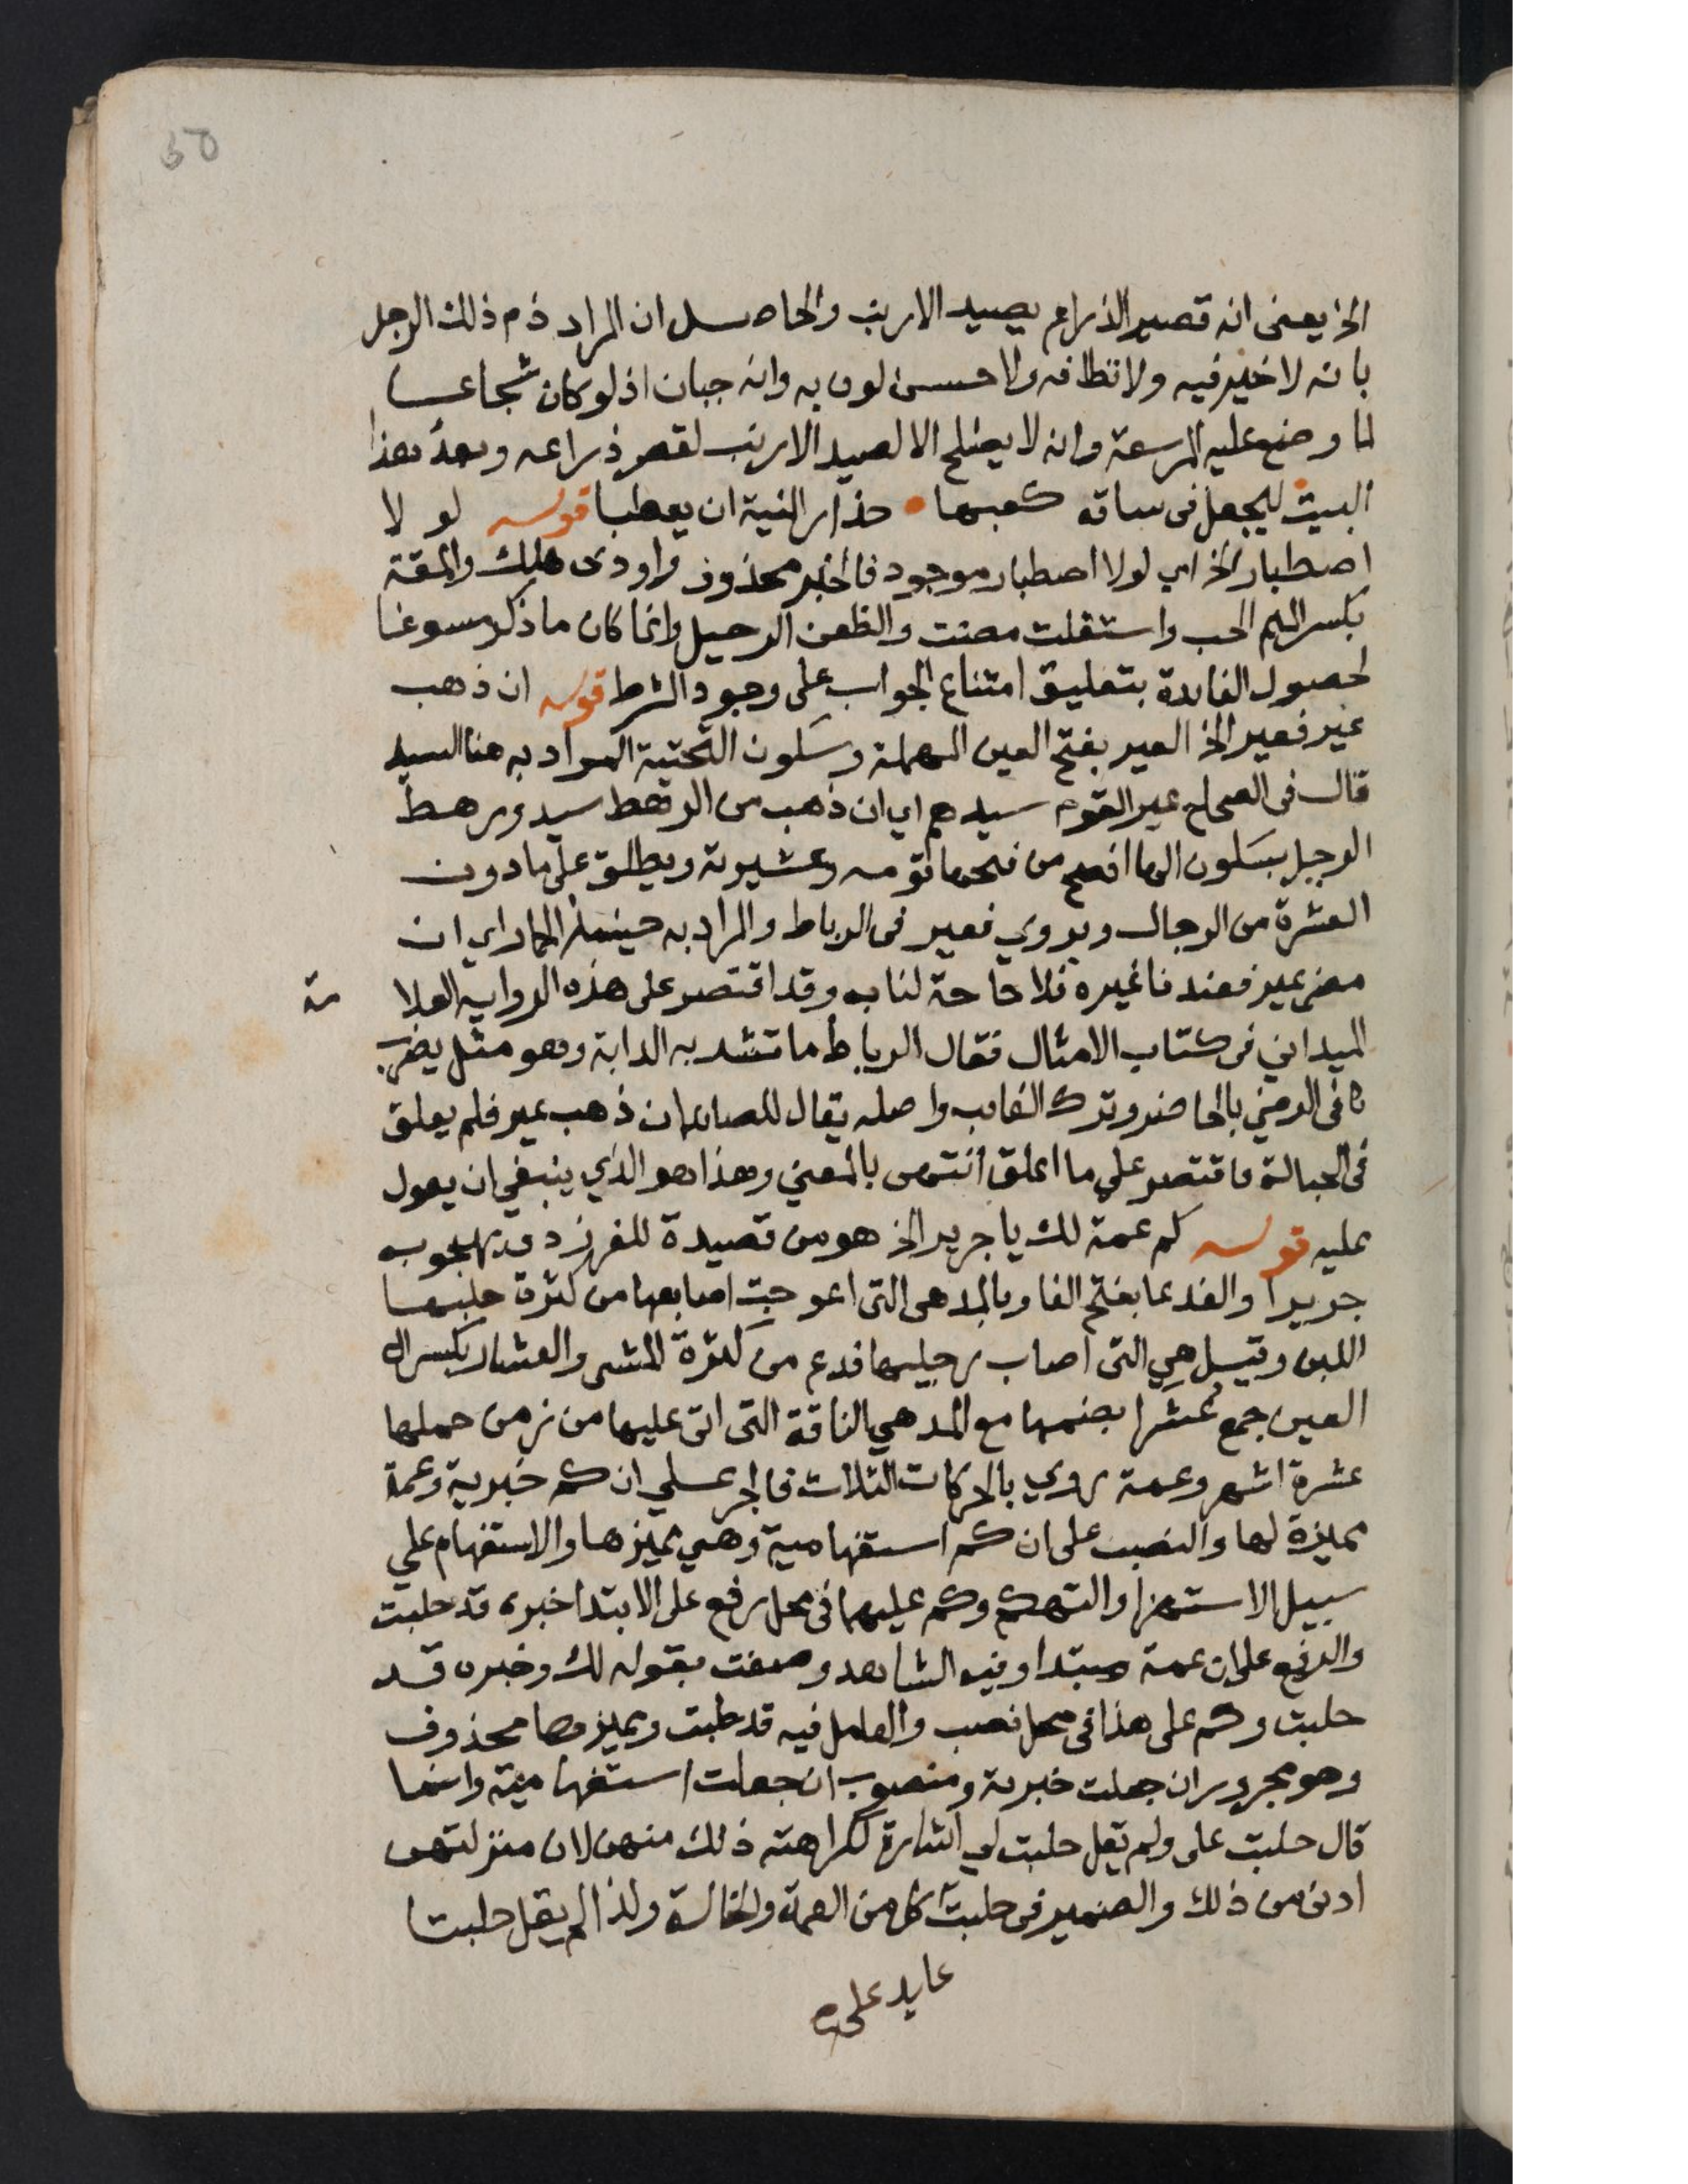 ٥٥
الخ يعنى انه قصير الذراع يصيد الارنب والحاصل ان المراد ذم ذلك الرجل
بانه لا خير فيه ولا نظافه ولا حسن لون به وانه جبان اذ لو كان شجاعا
لما وضع عليه المرسعة وانه لا يصلح الا لصيد الارنب لقصر ذراعه وبعد هذا
البيت ليجعل فى ساقه كعبها • حذار المنية ان يعطبا قوله لو لا
اصطبار الخ اي لولا اصطبار موجود فالخبر محذوف واودى هلك والمقة
بكسر الميم الحب واستقلت مضت والظعن الرحيل وانما كان ما ذكر مسوغا
لحصول الفايدة بتعليق امتناع الجواب على وجود الشرط قوله ان ذهب
عير فعير الخ العير بفتح العين المهملة وسكون التحتية المراد به هنا السيد
قال فى الصحاح عير القوم سيدهم اي ان ذهب من الرهط سيد ورهط
الرجل بسكون الها افصح من فتحها قومه وعشيرته ويطلق على ما دون
العشرة من الرجال ويروي فعير فى الرباط والمراد به حينئذ الحمار اي ان
مضى عير فعندنا غيره فلا حاجة لنا به وقد اقتصر على هذه الرواية العلا مة
الميدانى فى كتاب الامثال فقال الرباط ما تشد به الدابة وهو مثل يضرب
فى الرضي بالحاضر وترك الغايب واصله يقال للصايد ان ذهب عير فلم يعلق
فى الحبالة فاقتصر علي ما اعلق انتهى بالمعني وهذا هو الذي ينبغي ان يعول
عليه قوله كم عمة لك يا جرير الخ هو من قصيدة للفرزدق يهجو به
جريرا والفدعا بفتح الفا وبالمد هى التى اعوجت اصابعها من كثرة حلبها
اللبن وقيل هي التى اصاب رجليها فدع من كثرة المشى والعشار بكسر ال
العين جمع عشرا بضمها مع المد هي الناقة التى اتى عليها من زمن حملها
عشرة اشهر وعمة روي بالحركات الثلاث فالجر على ان كم خبرية وعمة
مميزة لها والنصب على ان كم استفهامية وهي مميزها والاستفهام علي
سبيل الاستهزا والتهكم وكم عليهما فى محل رفع على الابتدا خبره قد حلبت
والرفع على ان عمة مبتدا وفيه الشاهد وصفت بقوله لك وخبره قد
حلبت وكم على هذا فى محل نصب والعامل فيه قد حلبت ومميزها محذوف
وهو مجرور ان جعلت خبرية ومنصوب ان جعلت استفهامية وانما
قال حلبت على ولم يقل حلبت لي اشارة لكراهته ذلك منهن لان منزلتهن
ادنى من ذلك والضمير فى حلبت كل من العمة والخالة ولذا لم يقل حلبتا
عايد على